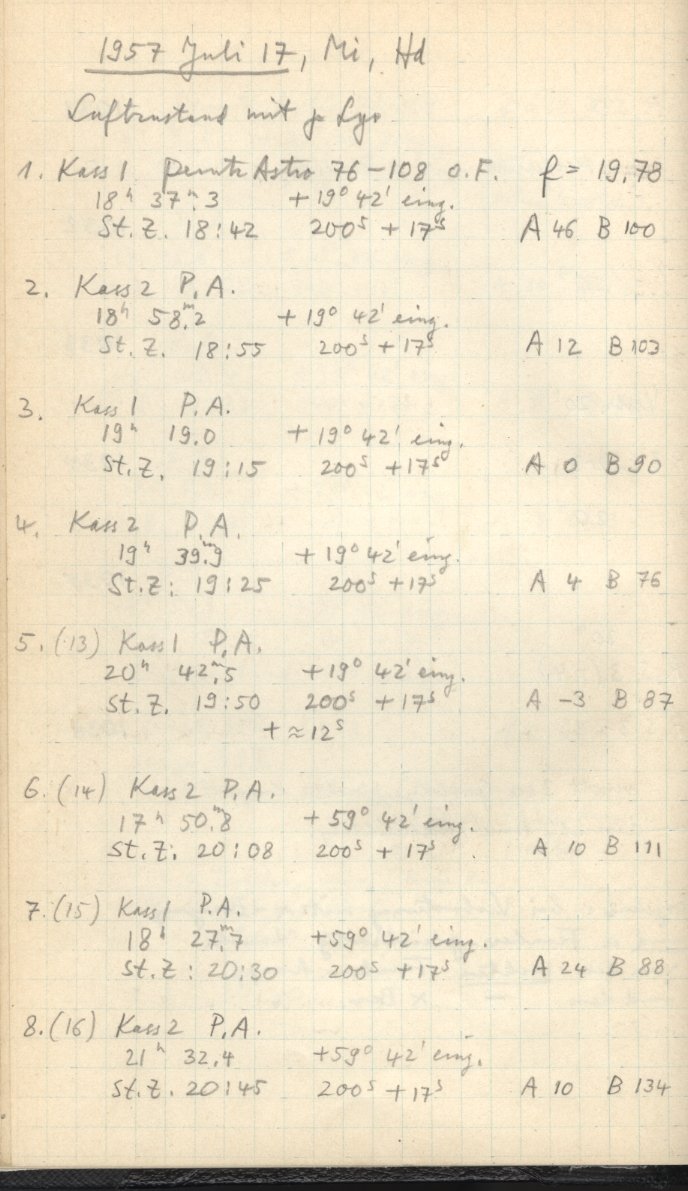 1957 Juli 17, Mi, Hd
Luftzustand mit γ Lyr
1. Kass 1 Perutz Astro 76-108 o.F. f = 19,78
18ʰ 37ᵐ,3 +19° 42' eing.
St.Z. 18:42 200ˢ + 17ˢ A 46 B 100
2. Kass 2 P.A.
18ʰ 58ᵐ,2 +19° 42' eing.
St.Z. 18:55 200ˢ + 17ˢ A 12 B 103
3. Kass 1 P.A.
19ʰ 19,0 +19° 42' eing.
St.Z. 19:15 200ˢ +17ˢ A 0 B 90
4. Kass 2 P.A.
19ʰ 39ᵐ,9 +19° 42' eing.
St.Z: 19:25 200ˢ +17ˢ A 4 B 76
5. (13) Kass 1 P.A.
20ʰ 42ᵐ,5 +19° 42' eing.
St.Z. 19:50 200ˢ +17ˢ A -3 B 87
+ ≈ 12ˢ
6. (14) Kass 2 P.A.
17ʰ 50ᵐ,8 +59° 42' eing.
St.Z: 20:08 200ˢ + 17ˢ A 10 B 111
7. (15) Kass 1 P.A.
18ʰ 27ᵐ,7 +59° 42' eing.
St.Z: 20:30 200ˢ +17ˢ A 24 B 88
8. (16) Kass 2 P.A.
21ʰ 32,4 +59° 42' eing.
St.Z. 20:45 200ˢ +17ˢ A 10 B 134